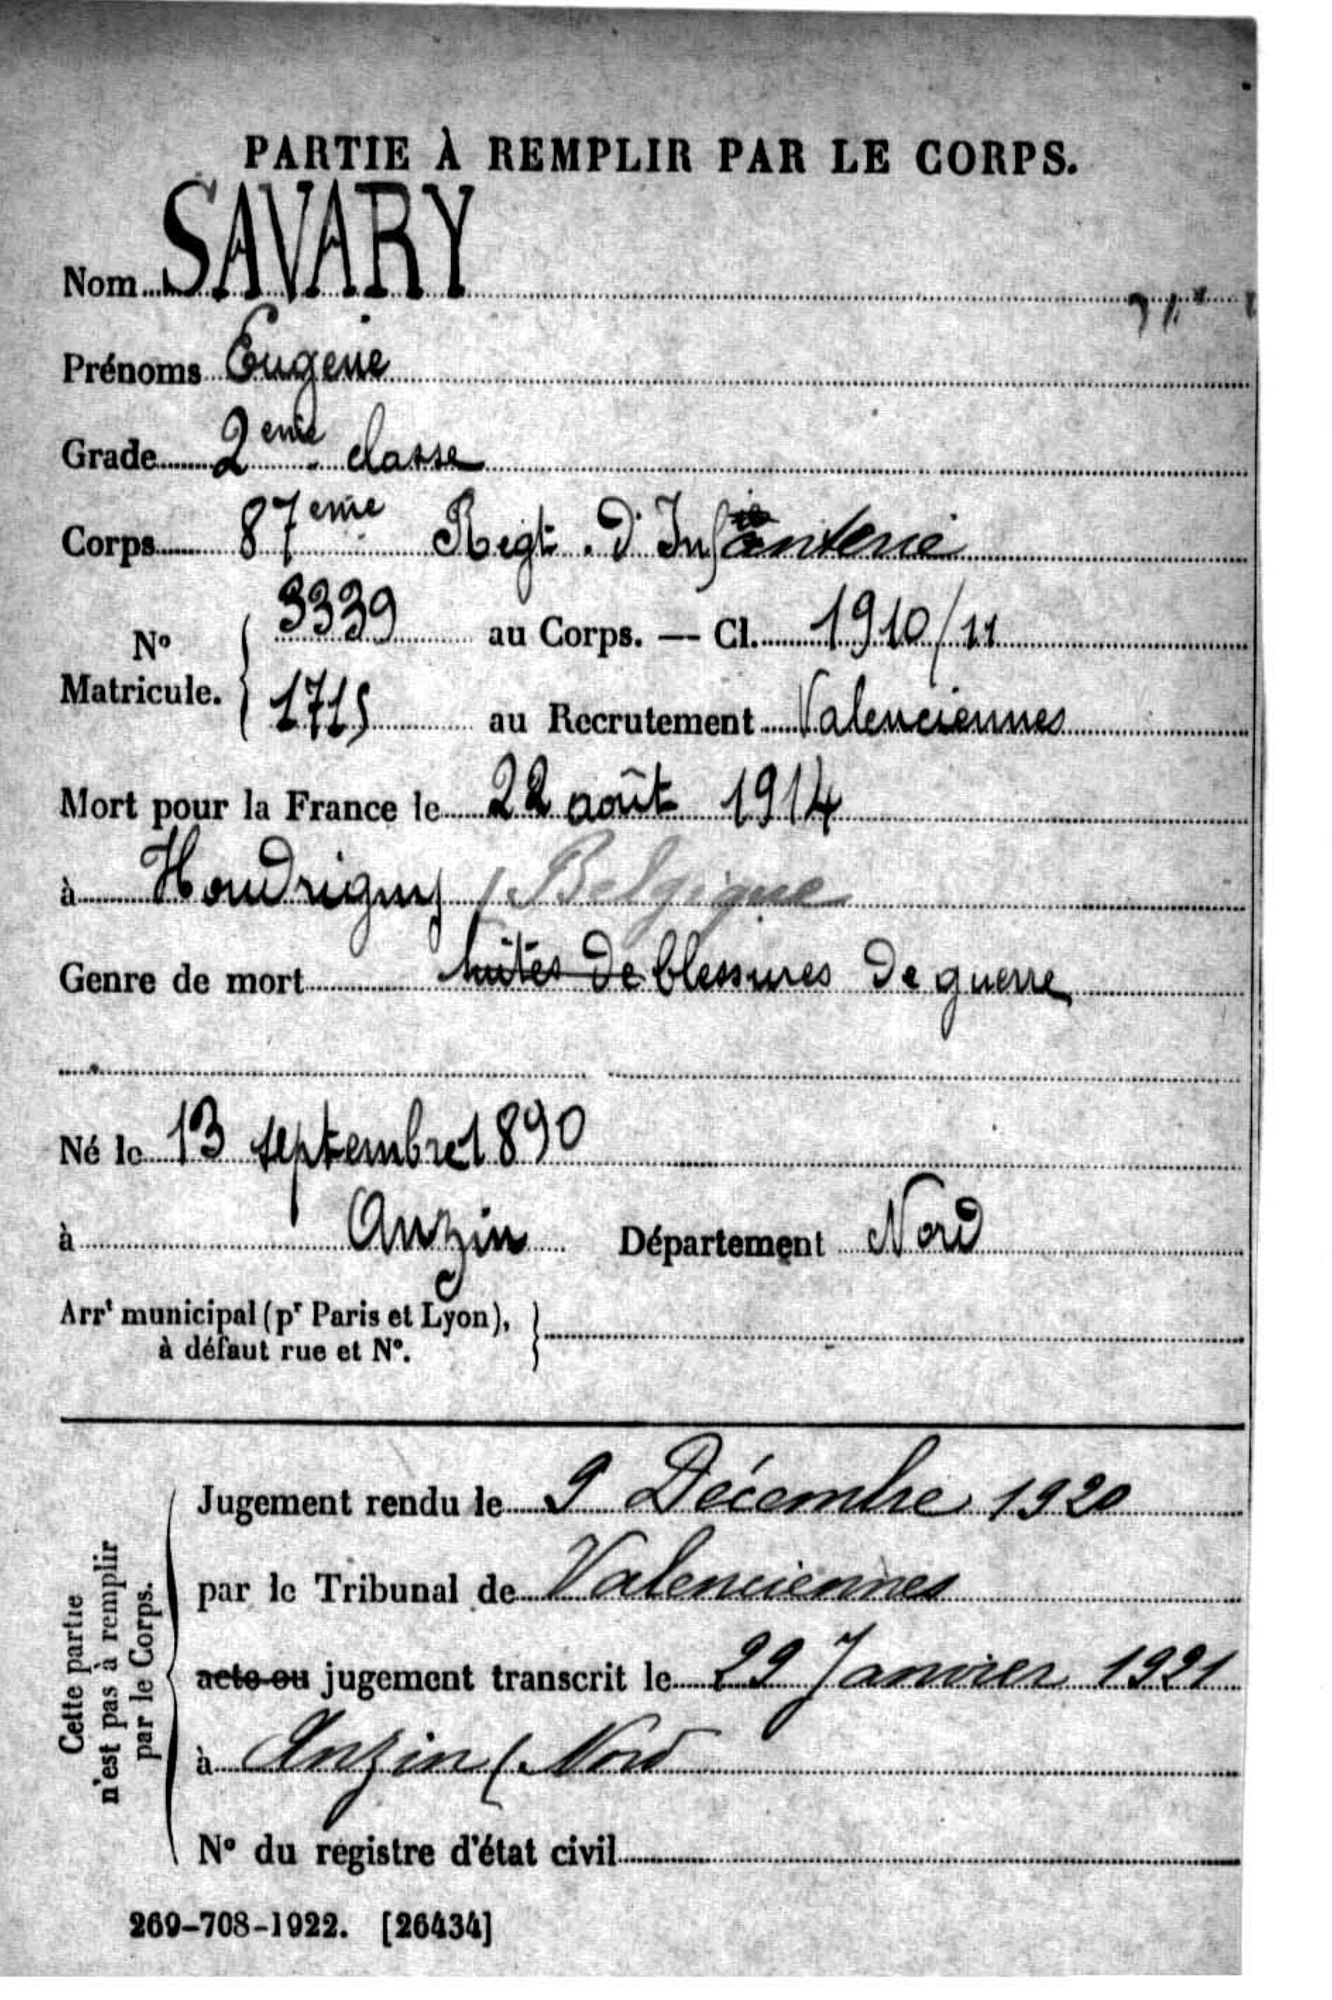 PARTIE À REMPLIR PAR LE CORPS.
Nom SAVARY
Prénoms Eugene
Grade 2eme classe
Corps 87eme Regt. d'Infanterie
No Matricule. 3339 au Corps. — Cl. 1910/11
1715 au Recrutement Valenciennes
Mort pour la France le 22 août 1914
à Houdrigny (Belgique
Genre de mort suites de blessures de guerre
Né le 13 septembre 1890
à Anzin Département Nord
Arrt municipal (pr Paris et Lyon),
à défaut rue et No.
Cette partie
n'est pas à remplir
par le Corps.
Jugement rendu le 9 Décembre 1920
par le Tribunal de Valenciennes
acte ou jugement transcrit le 29 Janvier 1921
à Anzin (Nord
No du registre d'état civil
269-708-1922. [26434]